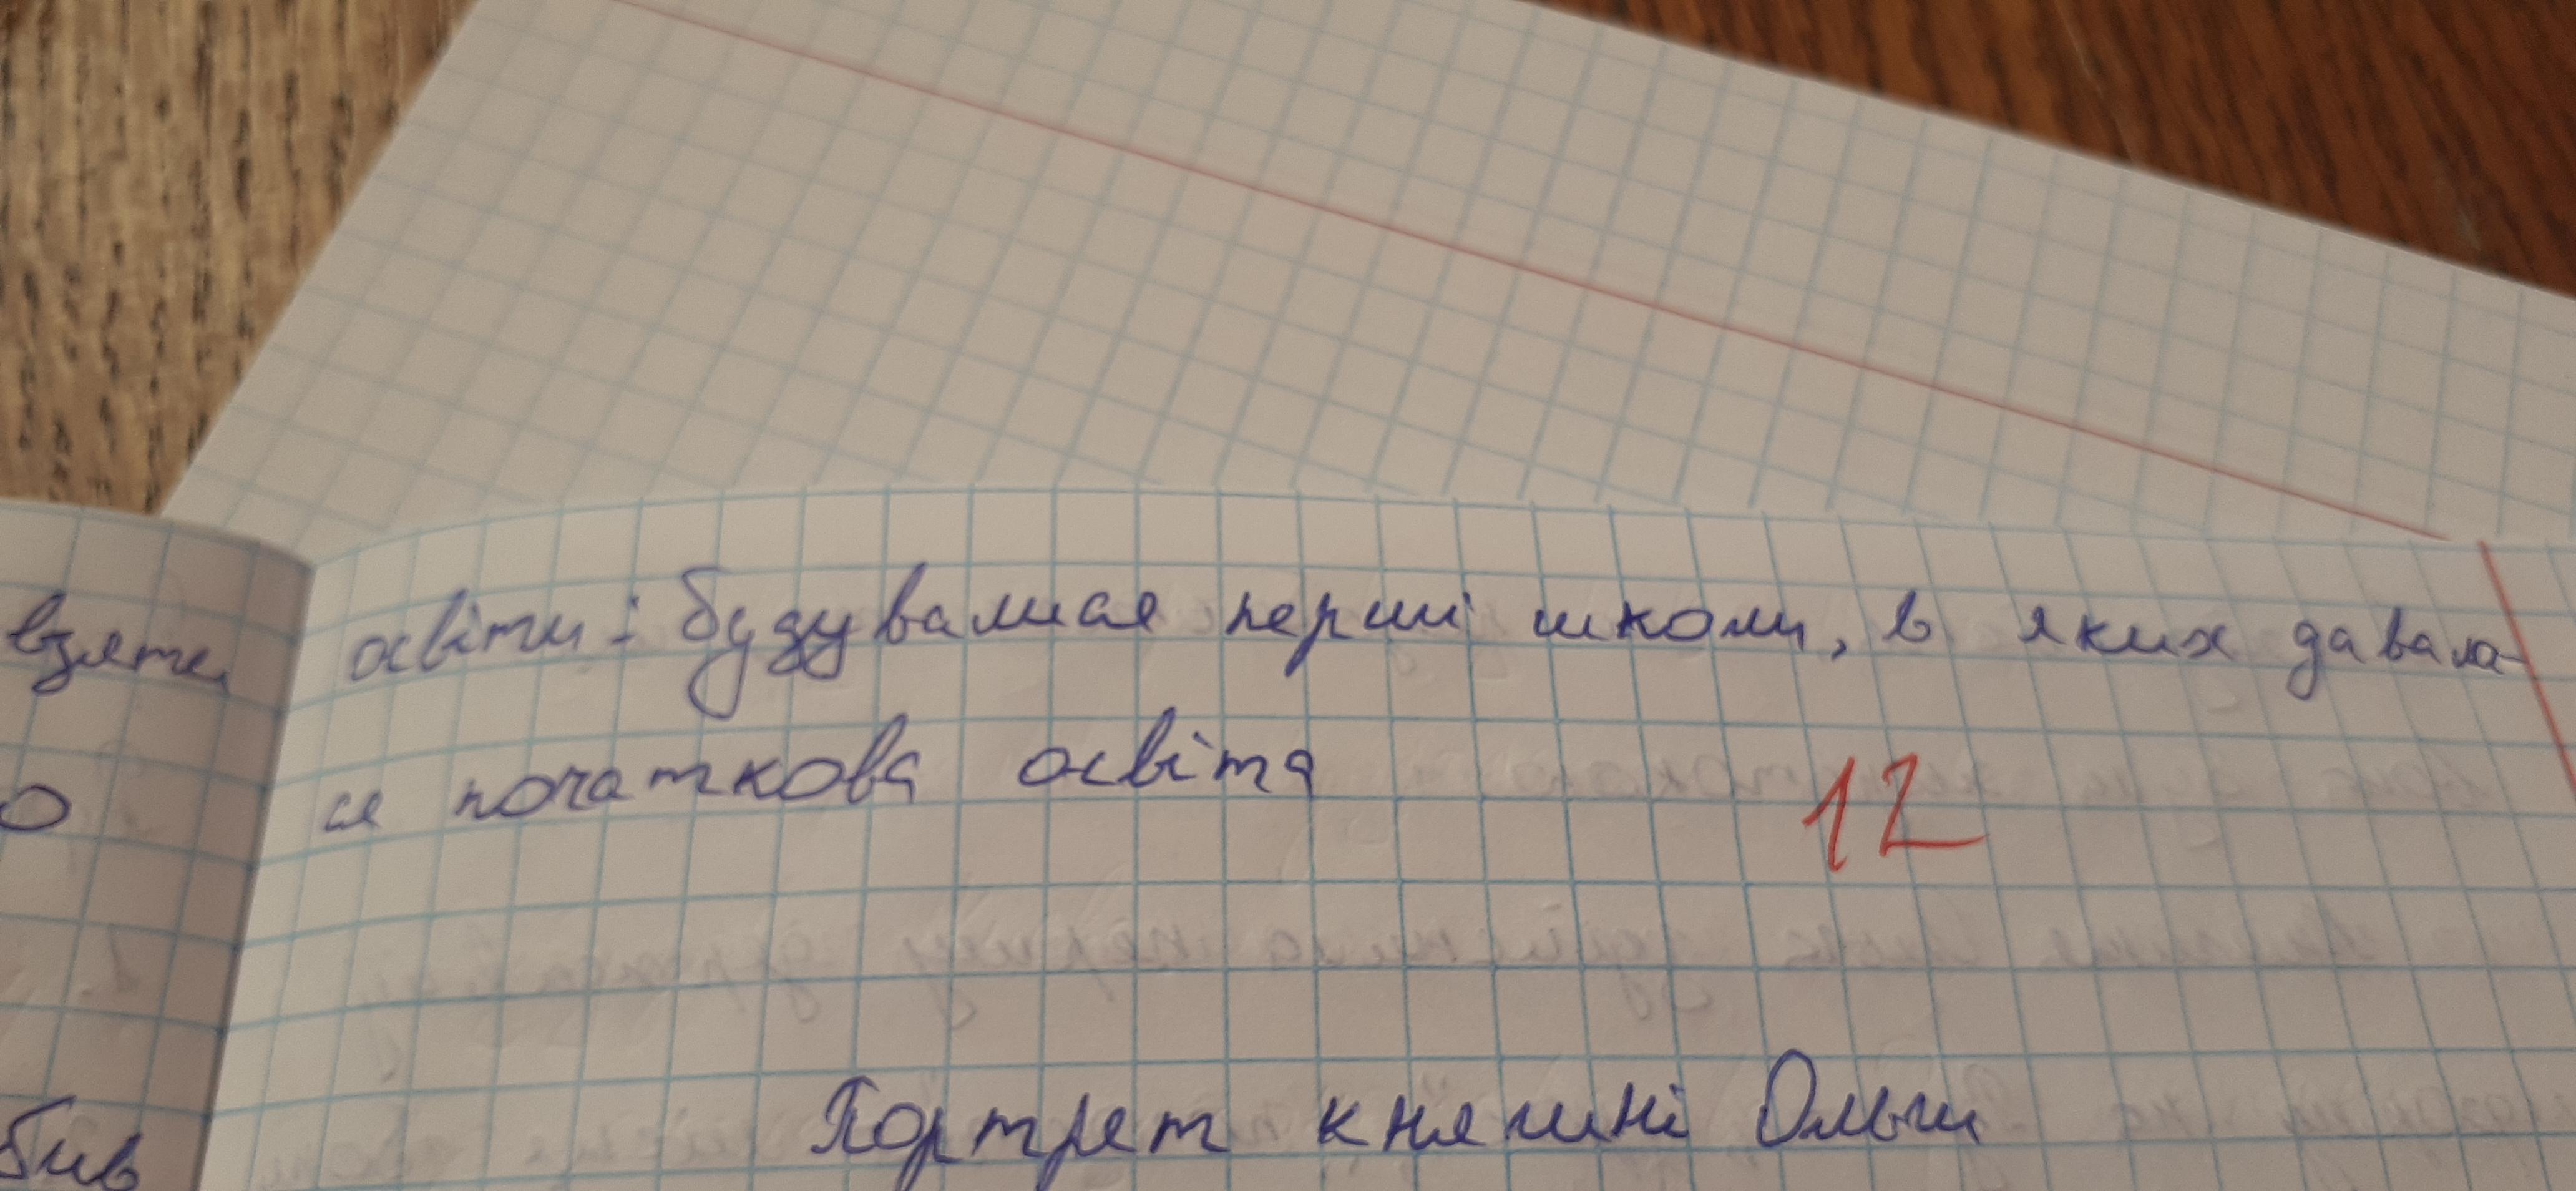 взяти
о
бив
освіти: будувалися перші школи, в яких давала-
ся початкова освіта
12
Портрет княгині Ольги